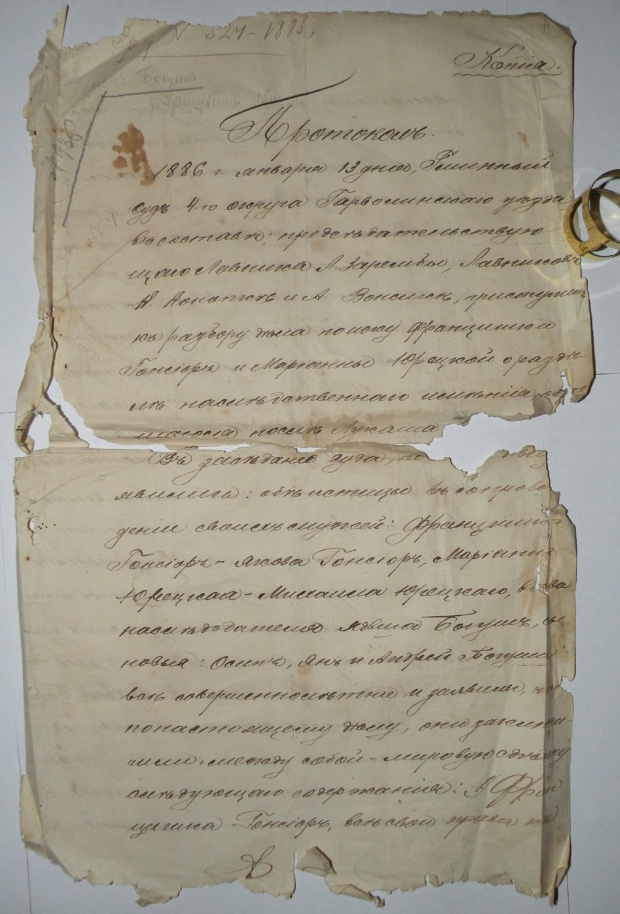 № 521-1885.
Копiа.
Богуш
1736
Протоколъ.
1886 г. января 13 дня, Гминный
судъ 4го округа Гарволинскаго уѣзда
въ составѣ: предсѣдательствую
щаго Лавника Л. Зарембы, Лавниковъ
и А. Вонсикъ, приступилъ
къ разбору дѣла по иску Францишки
Гонсiоръ и Марiанны Юрецкой о раздѣ
лѣ наслѣдственнаго имѣнiя,
послѣ Лукаша
Въ засѣданiе суда,
явились: обѣ истицы въ сопрово
денiи своихъ мужей: Францишка
Гонсiоръ - Якова Гонсiоръ, Марiанна
Юрецкая - Михаила Юрецкаго, вдова
наслѣдодателя Ядвига Богушъ, сы
новья: Осипъ, Янъ и Андрей Богуши
всѣ совершеннолѣтнiе и заявили, что
по настоящему дѣлу, они заключи
ли, между собой - мировую сдѣлку
слѣдующаго содержанiя: А Фран
цишка Гонсiоръ, всѣ свои права на